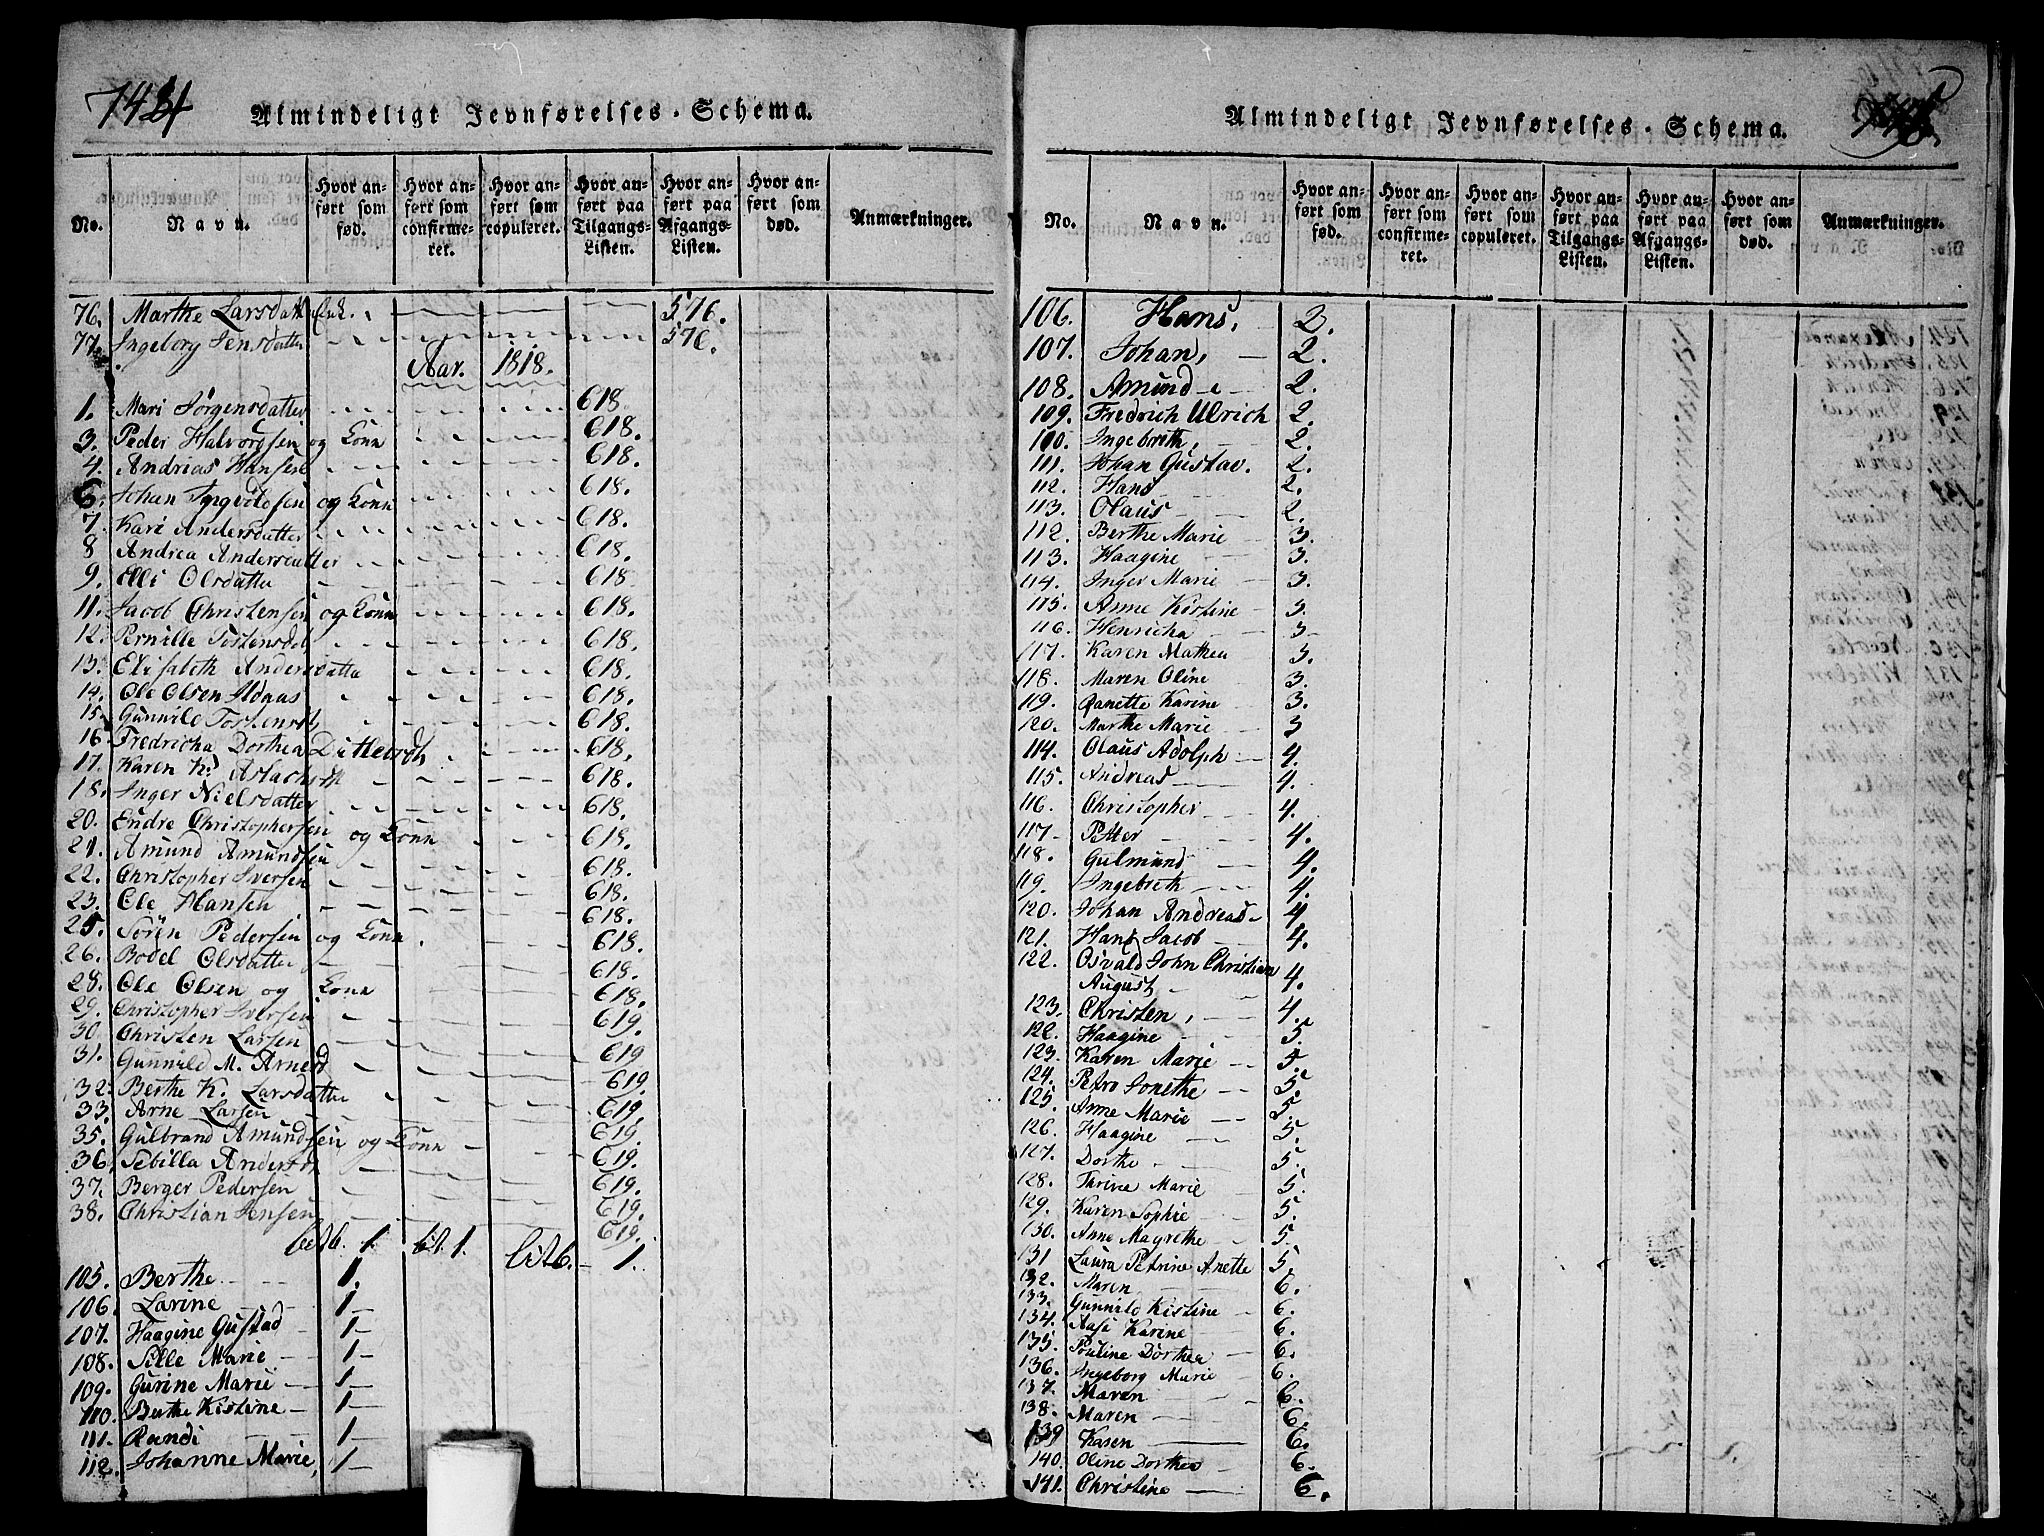 Almindeligt Jevnførelses-Schema.
No.
Navn.
Hvor anført som fød.
Hvor anført som confirmeret.
Hvor anført som copuleret.
Hvor anført paa Tilgangs-Listen.
Hvor anført paa Afgangs-Listen.
Hvor anført som død.
Anmærkninger.
76. Marthe Larsdatt Enk. 576.
77. Ingeborg Jensdatter 576.
Aar. 1818.
1. Mari Jørgensdatter 618.
3. Peder Halvorsen og Konn 618.
4. Andrias Hansen 618.
6. Johan Ingvoldsen og Konn 618.
7. Kari Andersdatter 618.
8 Andrea Andersdatter 618.
9. Elli Olsdatter 618.
11. Jacob Christensen og Konn 618.
12. Pernille Tostensd 618.
13. Elisabeth Andersdatter 618.
14. Ole Olsen Aldaas 618.
15. Gunnild Tostensd 618.
16. Fredricha Dorthea Ditlevsdt 618.
17. Karen K. Aslachsdt 618.
18. Inger Nielsdatter 618.
20. Endre Christophersen og Konn 618.
21. Amund Amundsen 618.
22. Christopher Iversen 618.
23. Ole Hansen 618.
25. Sören Pedersen og Konn 618.
26. Bodel Olsdatter 618.
28. Ole Olsen og Konn 618.
29. Christopher Iversen 619.
30. Christen Larsen 619
31. Gunnild M. Arnesd 619.
32. Berthe K. Larsdatter 619.
33. Arne Larsen 619.
35. Gulbrand Amundsen og Konn 619.
36. Sebilla Andersd 619.
37. Berger Pedersen 619.
38. Christian Jensen 619.
Lit b. 1. Lit. 1. Lit b. 1.
105. Berthe 1.
106. Larine 1
107. Haagine Gustad 1
108. Sille Marie 1
109. Gurine Marie 1
110. Berthe Kistine 1
111. Randi 1
112. Johanne Marie, 1
Almindeligt Jevnførelses-Schema.
No.
Navn.
Hvor anført som fød.
Hvor anført som confirmeret.
Hvor anført som copuleret.
Hvor anført paa Tilgangs-Listen.
Hvor anført paa Afgangs-Listen.
Hvor anført som død.
Anmærkninger.
106. Hans, 2.
107. Johan, 2.
108. Amund 2.
109. Fredrich Ulrich 2.
110. Ingebreth, 2.
111. Johan Gustav. 2.
112. Hans 2.
113. Olaus 2.
112. Berthe Marie 3.
113. Haagine 3.
114. Inger Marie 3.
115. Anne Kistine 3.
116. Henricha 3
117. Karen Mathea 3.
118. Maren Oline 3.
119. Janette Karine 3.
120. Marthe Marie 3
114. Olaus Adolph 4.
115. Andreas 4.
116. Christopher 4.
117 Petter 4.
118. Gulmund 4.
119. Ingebreth 4.
120. Johan Andreas 4
121. Hans Jacob 4.
122. Osvald John Christian
August 4.
123. Christen, 4.
122. Haagine 5.
123. Karen Marie 5.
124. Petro Jonethe 5.
125. Anne Marie 5.
126. Haagine 5.
127. Dorthe 5.
128. Thrine Marie 5.
129. Karen Sophie 5.
130. Anne Magrethe 5.
131 Laura Petrine Anette 5.
132. Maren 6.
133. Gunnild Kistine 6.
134. Aase Karine 6.
135. Pouline Dorthea 6.
136. Ingeborg Marie 6.
137. Maren 6.
138. Maren 6.
139 Karen 6.
140. Oline Dorthea 6.
141. Christine 6.